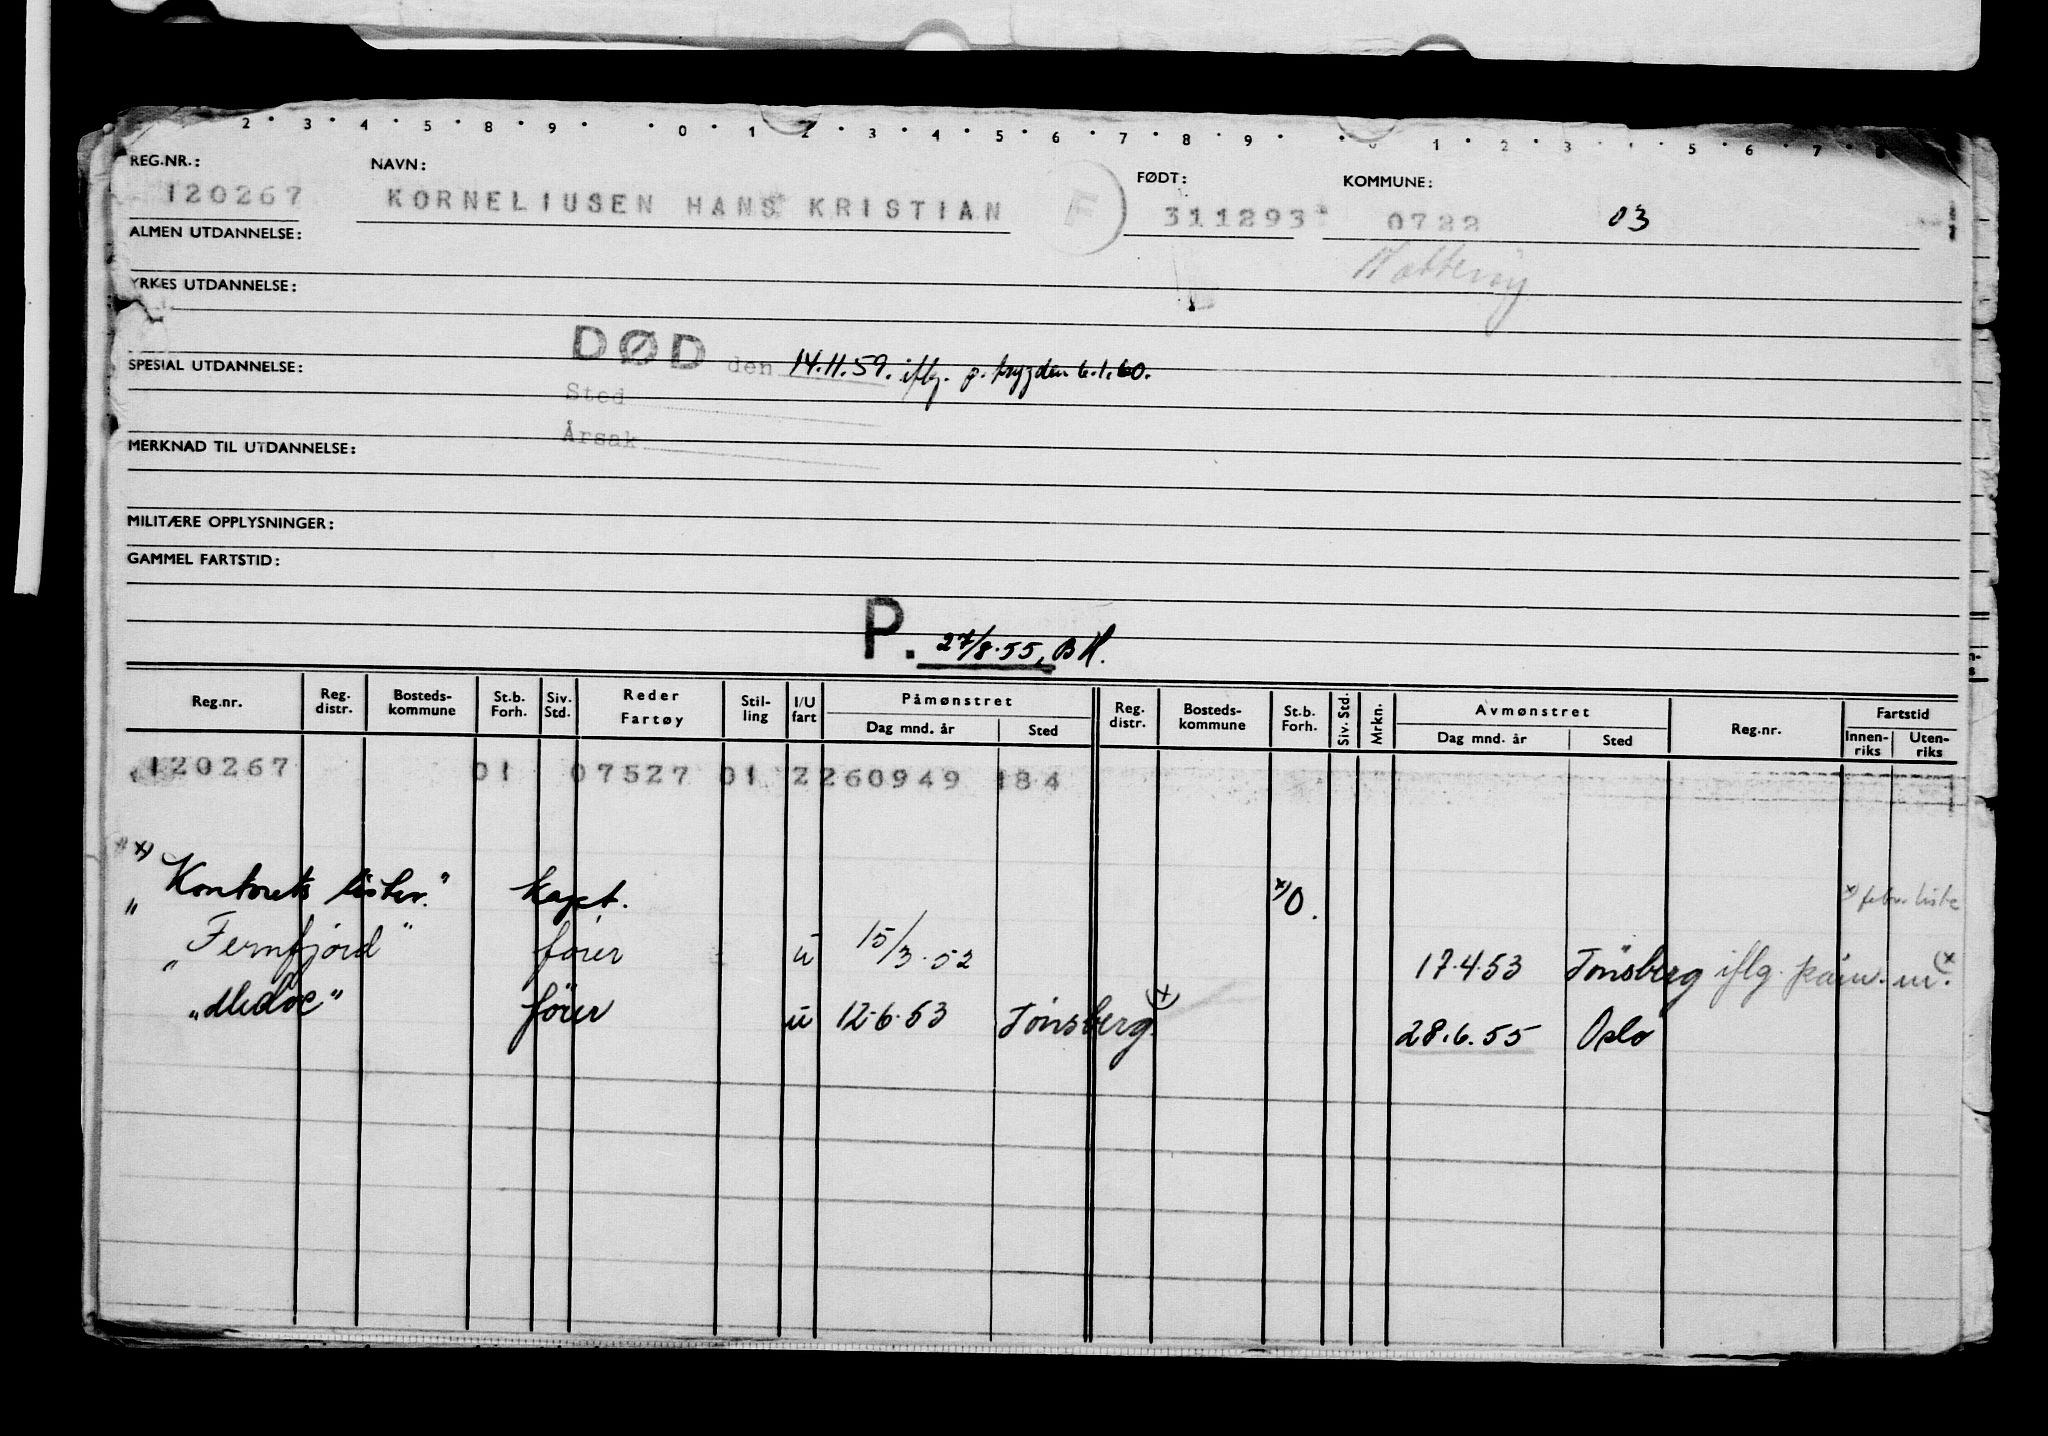 2 · 3 · 4 · 5 · 8 · 9 · · 0 · 1 · 2 · 3 · 4 · 5 · 6 · 7 · 8 · 9 · · 1 · 2 · 3 · · 5 · 6 · 7 · 8
REG.NR.: NAVN: FØDT: KOMMUNE:
120267 KORNELIUSEN HANS KRISTIAN F 311293 0722 03
ALMEN UTDANNELSE:
Nøtterøy
YRKES UTDANNELSE:
DØD den 14.11.59. iflg. p. trygden 6.1.60.
SPESIAL UTDANNELSE:
Sted
Årsak
MERKNAD TIL UTDANNELSE:
MILITÆRE OPPLYSNINGER:
GAMMEL FARTSTID:
P. 27/8.55, BH.
Reg.nr. Reg. distr. Bosteds-kommune St.b. Forh. Siv. Std. Reder Fartøy Stil-ling I/U fart Påmønstret Dag mnd. år Sted Reg. distr. Bosteds-kommune St.b. Forh. Siv. Std. Mrkn. Avmønstret Dag mnd. år Sted Reg.nr. Fartstid Innen-riks Uten-riks
120267 01 07527 01 2 260949 184
x) "Kontorets lister." kapt. x) O. x) febr. liste
"Fernfjord" fører u 15/3.52 17.4.53 Tönsberg iflg. påm. m. x)
"Medoc" fører u 12.6.53 Tønsberg. x) 28.6.55 Oslo